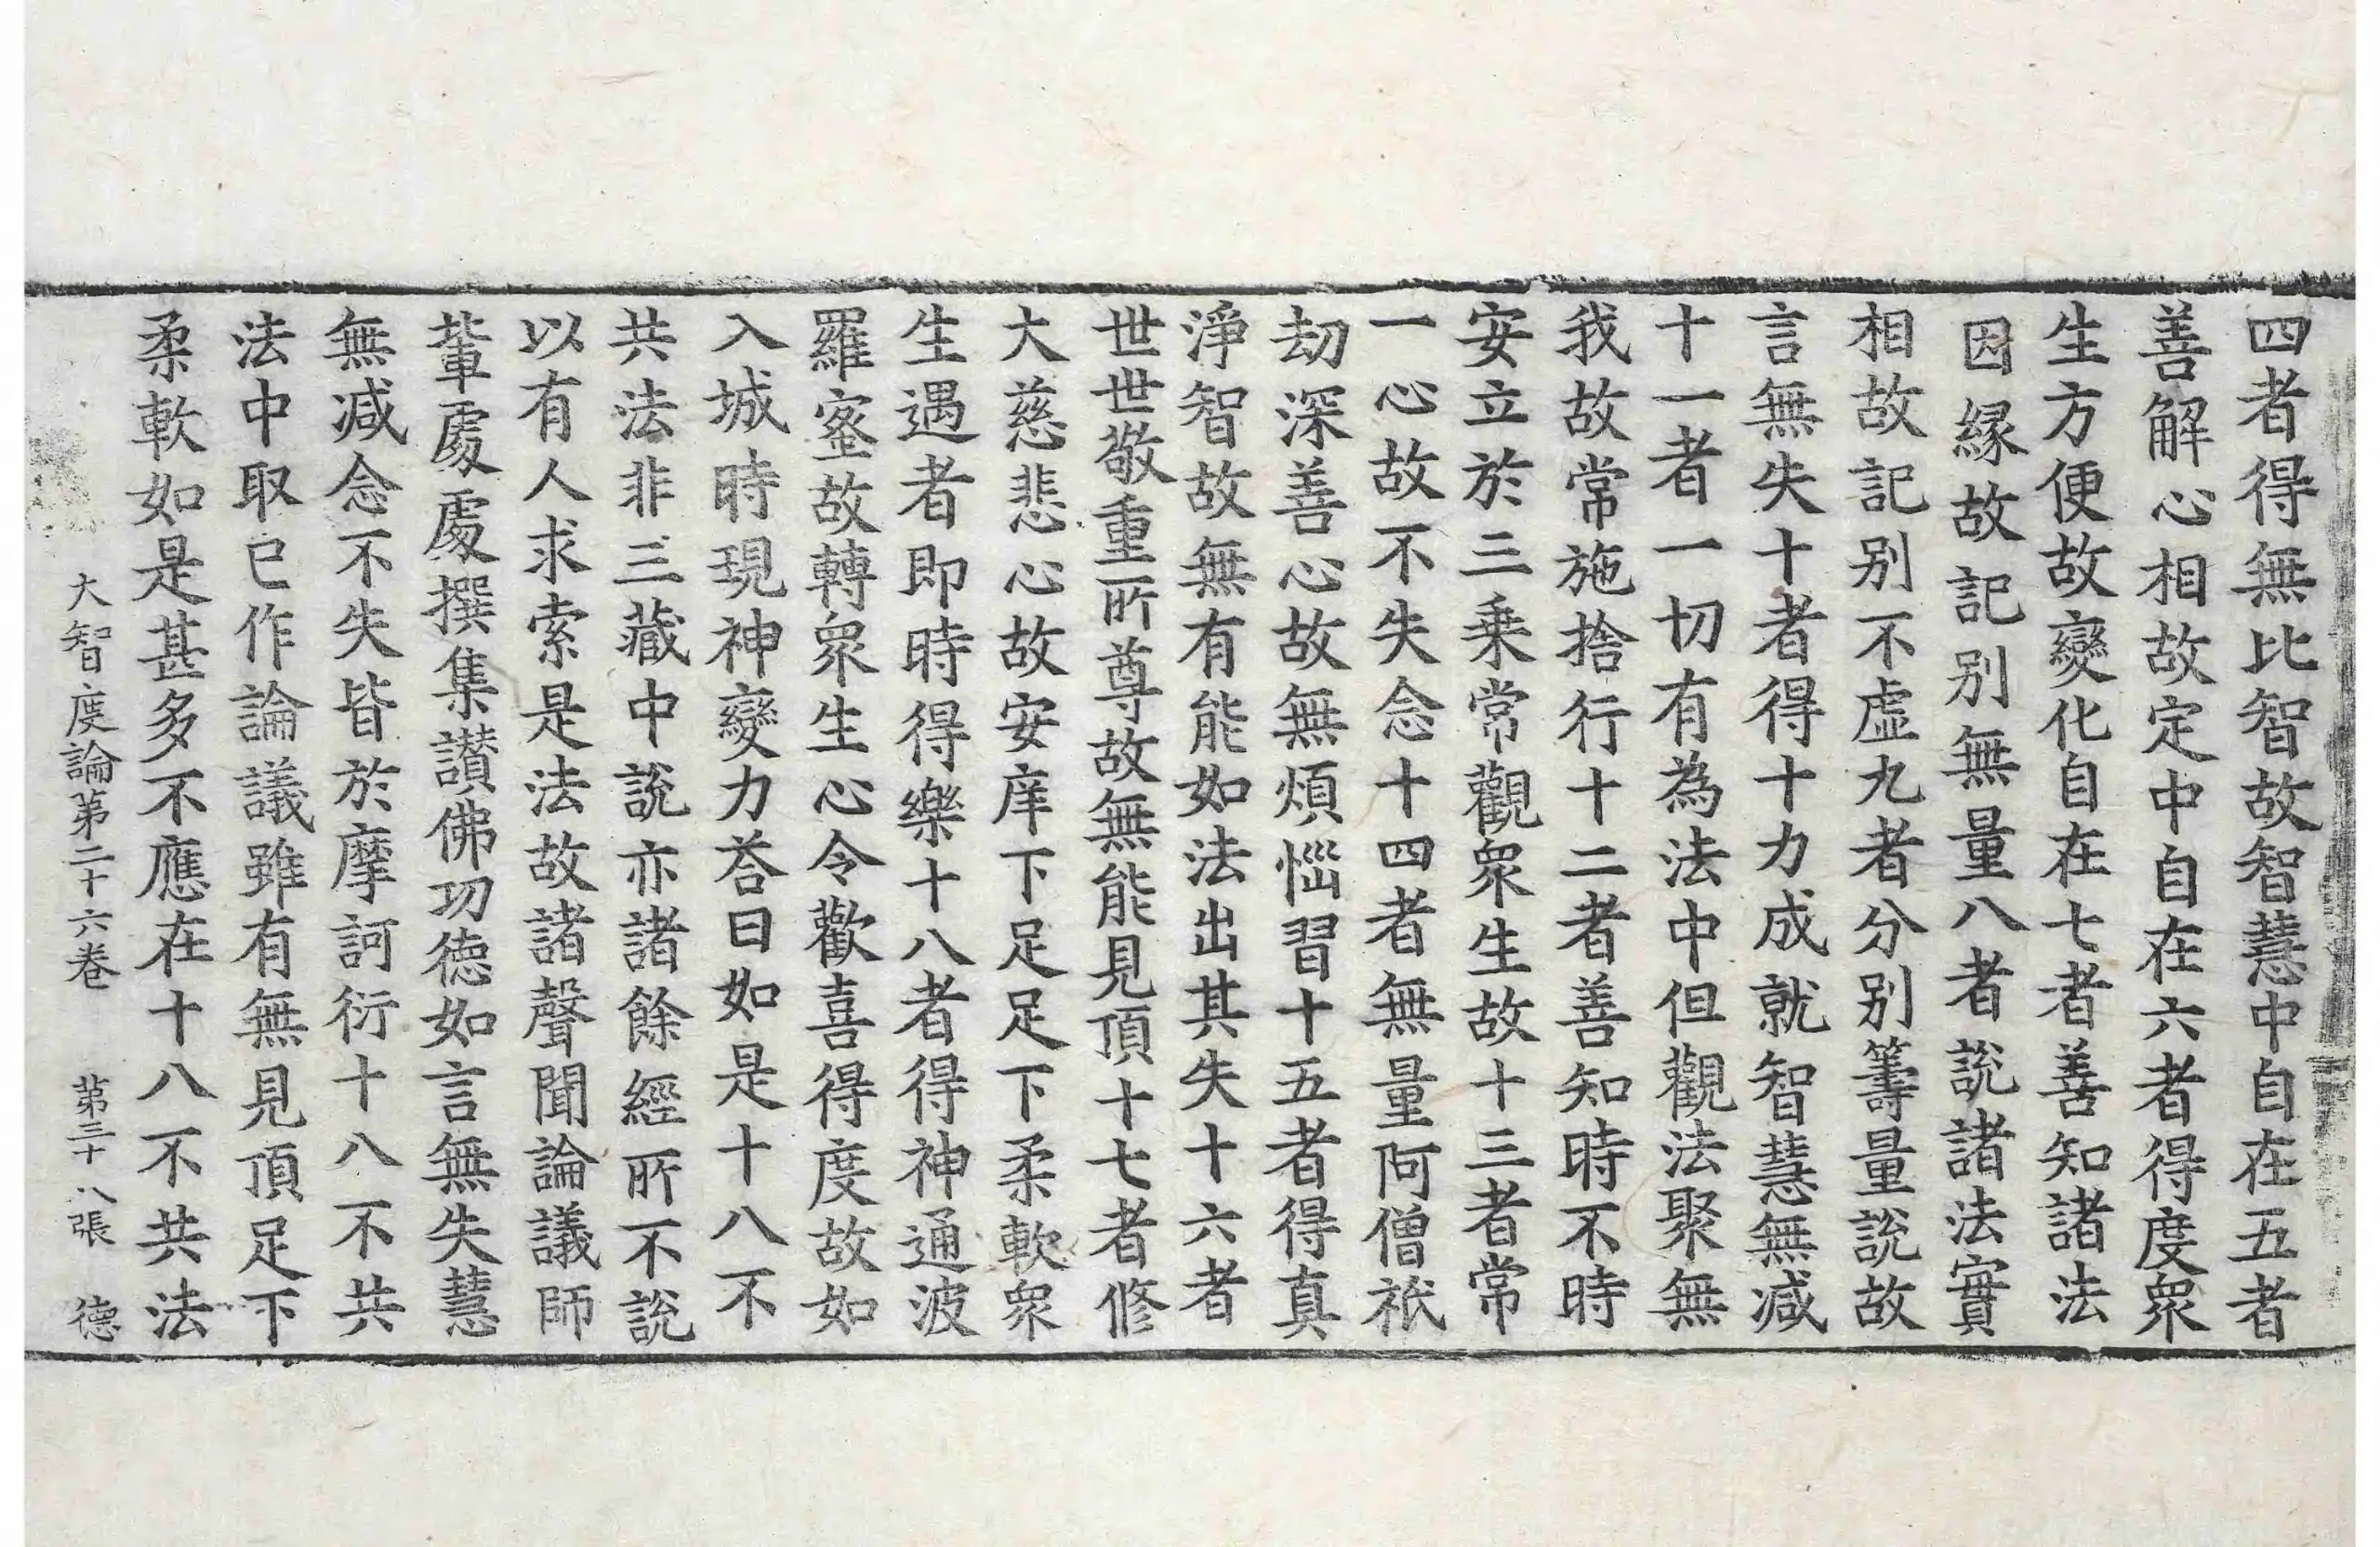 四者得無比智故智慧中自在五者
善解心相故定中自在六者得度衆
生方便故變化自在七者善知諸法
因縁故記别無量八者說諸法實
相故記别不虛九者分别籌量說故
言無失十者得十力成就智慧無减
十一者一切有為法中但觀法聚無
我故常施捨行十二者善知時不時
安立於三乗常觀衆生故十三者常
一心故不失念十四者無量阿僧祇
劫深善心故無煩惱習十五者得真
淨智故無有能如法出其失十六者
世世敬重所尊故無能見頂十七者修
大慈悲心故安庠下足足下柔軟衆
生遇者即時得樂十八者得神通波
羅蜜故轉衆生心令歡喜得度故如
入城時現神變力荅曰如是十八不
共法非三藏中說亦諸餘經所不說
以有人求索是法故諸聲聞論議師
輩處處撰集讃佛功德如言無失慧
無减念不失皆於摩訶衍十八不共
法中取已作論議雖有無見頂足下
柔軟如是甚多不應在十八不共法
大智度論第二十六卷 第三十八張 德